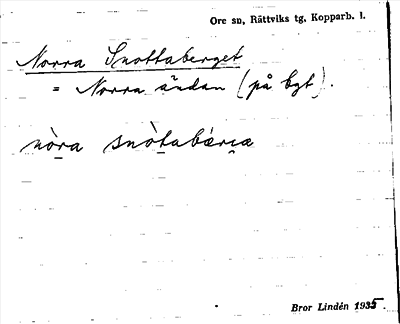 Ore sn, Rättviks tg, Kopparb. l.
Norra Snottaberget
= Norra ändan (på bgt).
nò̱ra snò̱tabǽrg̨æ
Bror Lindén 1935.